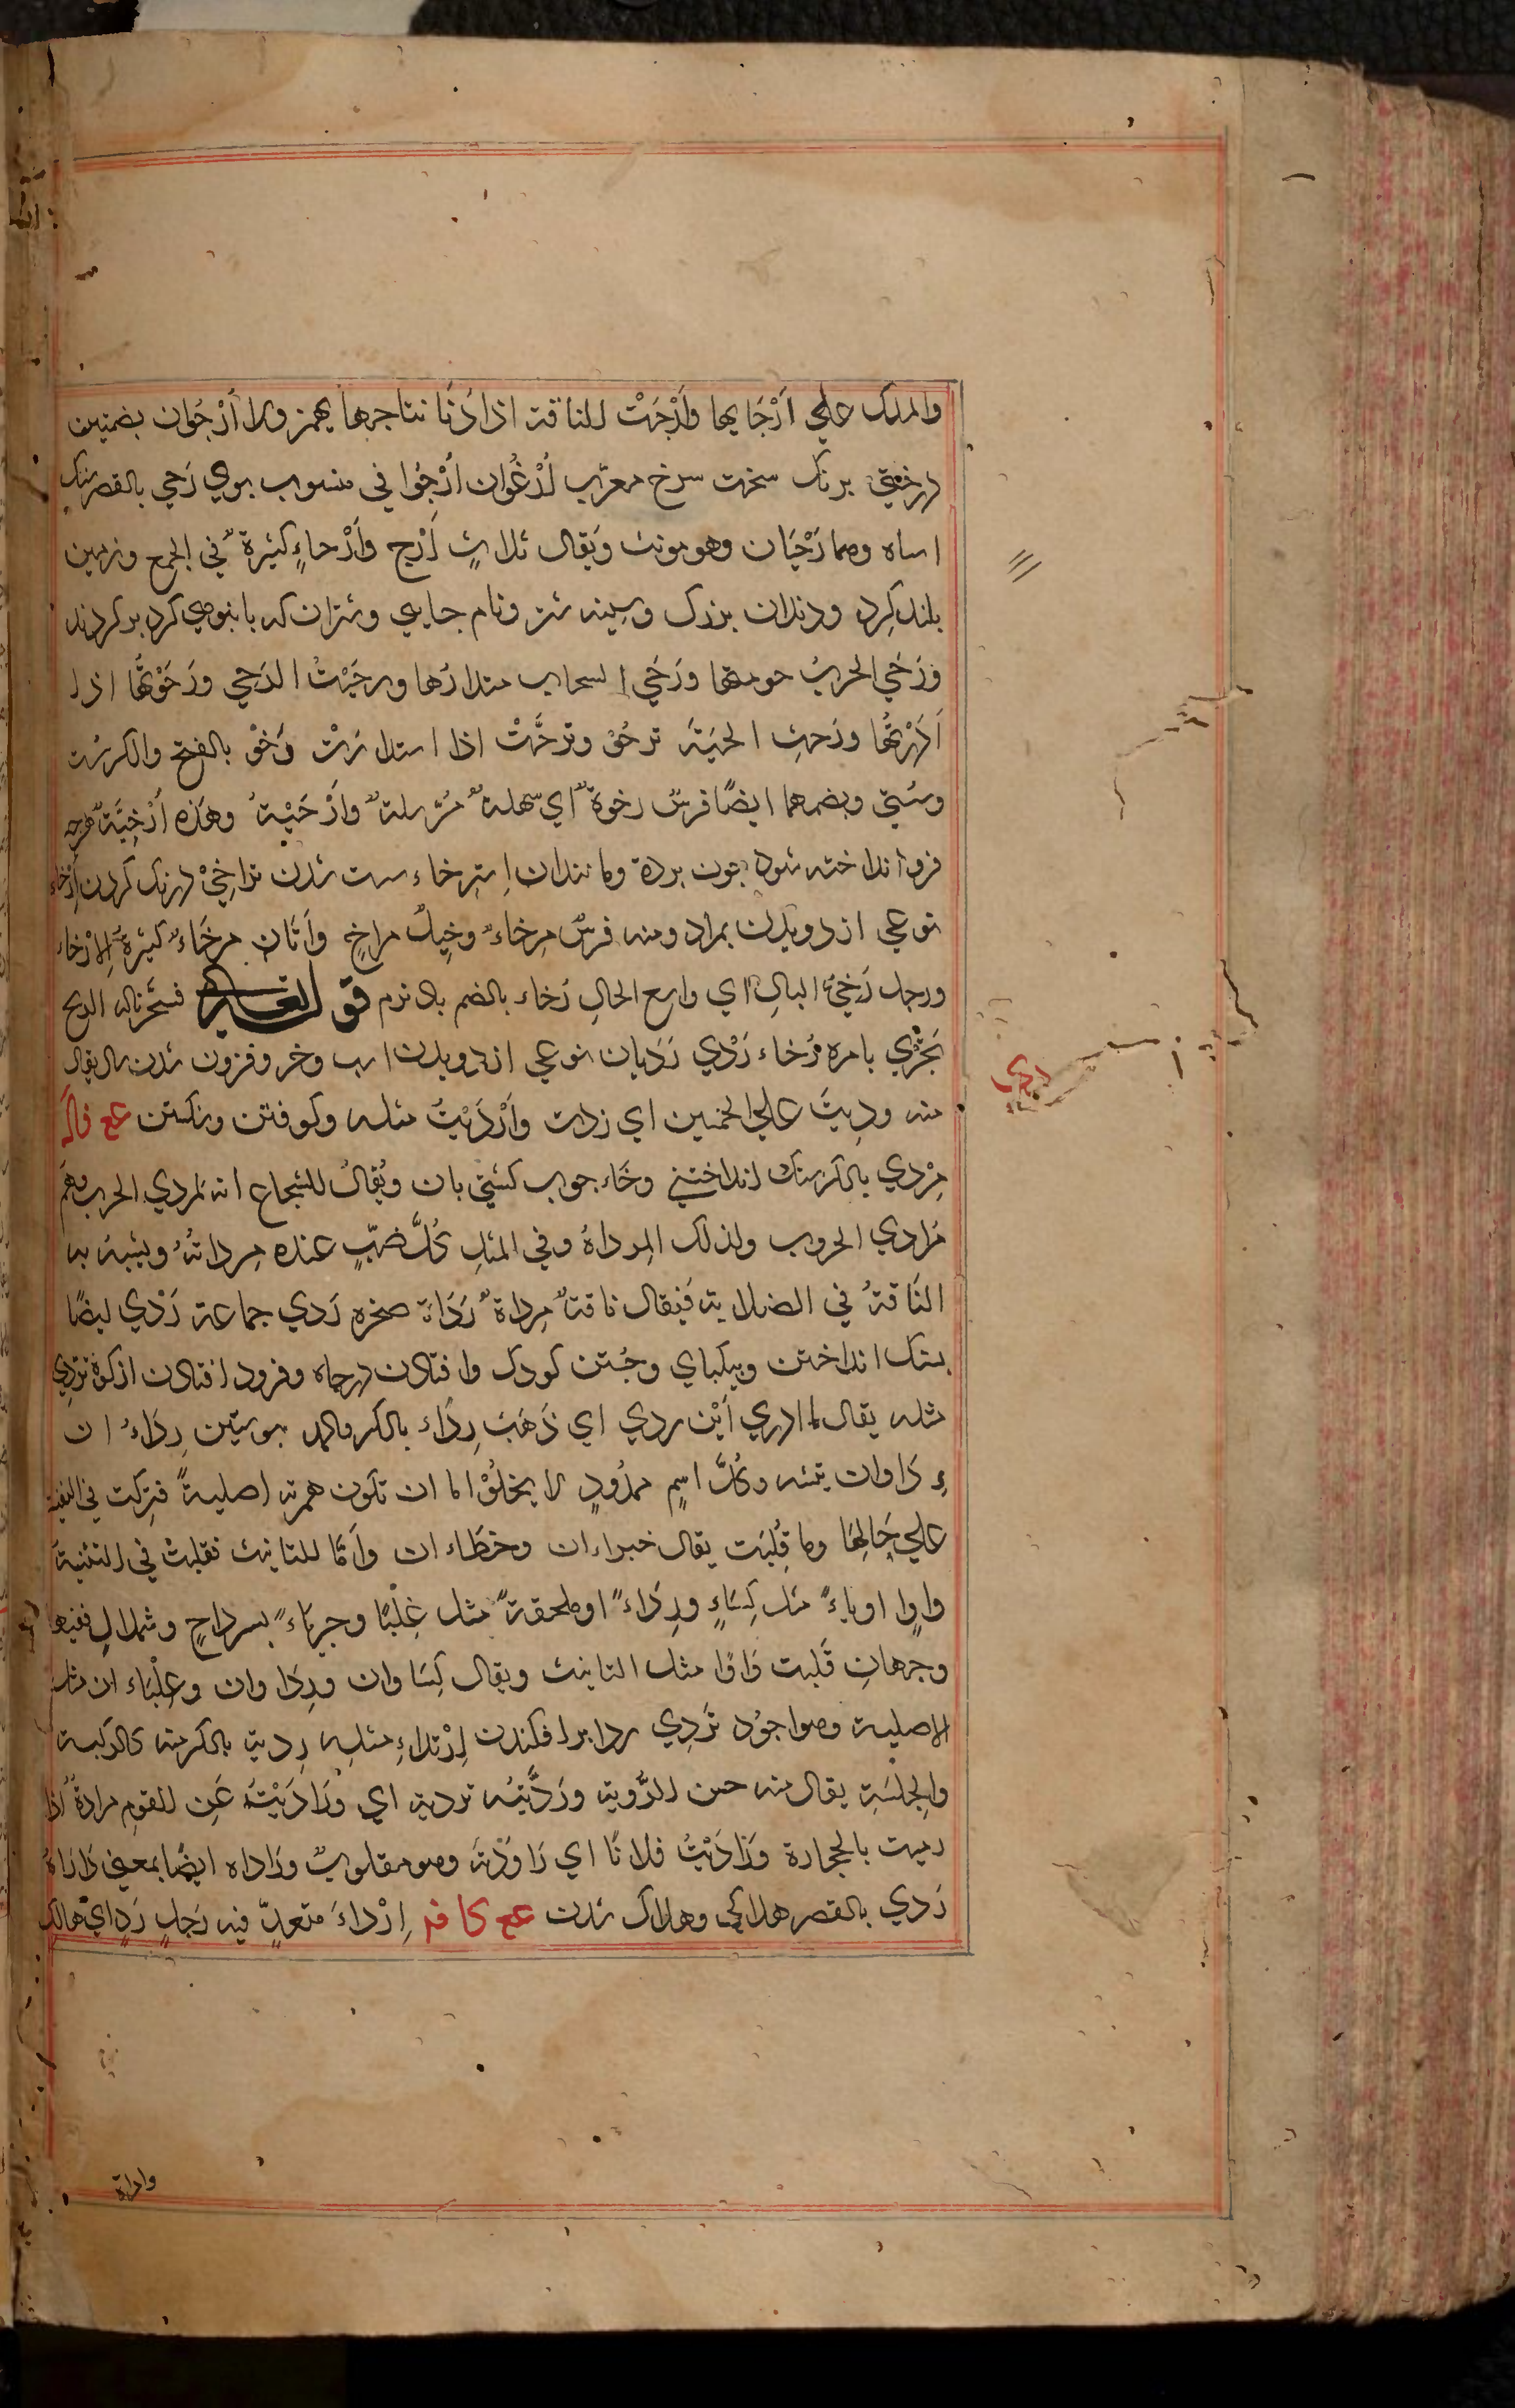 والملك علي ارْجَايها وَأرْجَتْ للناقة اذا دَنَا نتاجها يهمز ولا أرْجُوان بضمتين
درختي برنك سخت سرخ معرّب اُرْغُوان اُرْجُوا في منسوب بوي رَحي بالقصر سنك
اساه وهما رَحَيَان وهو مونث وَيقال ثلاثٍ اَرْحٍ واَرْحاءٍ كثيرة في الجمع وزمين
بلند كِرد ودندان بزرك وسينه شتر ونام جايي وشتران كه بانبوهي كرد بركردند
وَرَحَي الحربُ حومتها وَرَحَي السحاب مستدارُها ورحَيْتُ الرَحي ورَحَوْتُها اذا
اَدَرْتُها ورَحتِ الحيّة ترحُوْ وترحَّتْ اذا استدارَتْ رَخوْ بالفتح والكر سُست
وسُستي وبضمهما ايضًا فرسٌ رخوة اي سهلة مُسْترسلة وأرْخَيْة وهَذه اُرْخِيَّة هرچه
فرو انداخته شود چون پرده ومانندان اِسترخاء سست شدن تراخِيْ درنك كردن اِرْخاء
نوعي از دويدن بمراد ومنه فرسٌ مِرخاء وخيلٌ مراخٍ واَتان مرخَاء كثيرة الارْخاء
ورجل رَخيُّ البالِ اي واسع الحالِ رُخاء بالضم باد نرم قو لتعالى فسَخّرنا له الريح
تجْرِي بامره رُخاء رَدْي رَدَيان نوعي از دويدن اسب وخر وفزون شدن مال يقال
منه ورديتُ علي الخمسين اي زدت وَأرْدَيْتُ مثله وكوفتن وشكستن عع قالَ
مِرْدي بالكر سنك انداختني وخَاء چوب كشتي بان ويُقالُ للشجاع انه لمردي الحرب وهُمْ
مَرادي الحروب ولذلك المِرداة وفي المثلِ كُلُّ ضبّ عنده مِرداتهُ ويشبه به
الناقةُ في الصلابة فَيقال ناقة مِرداة رَدَاة صخره رَدي جماعة رَدْي ايضًا
بسنك انداختن وبيكباي وجُستن كودك وافتادن درچاه وفرود افتادن از كوه تردي
مثله يقال ما ادري اَيْن ردي اي ذَهَبَ رِدَاء بالكر والمد بوستين رِدَاءُ ان
ءِ دَاوان تثنيه وكُلُّ اسمٍ ممدُودٍ لا يخلُوْ اما ان تكون همزته اصليةً فتركت في التثنية
علي حَالِهَا وما قُلِبَت يقال خبراءان وخطَاءان وأمّا للتانيث فقلبتْ في التثنية
واوا او ياءً مثل كِسَاءٍ ورِدَاءً او ملحقةً مثل عِلْبًا وجربَاءً بسرداحٍ وشملالٍ ففيها
وجهانِ قلبت وَاوًا مثل التانيث ويقال كِسَاوان ورِدَاوان وعلْبَاءان مثل
الاصلية وهو اجوُد تَردِي ردا برافكندن اِرْتداءِ مثله رِدية بالكر منه كالركبة
والجِلسَةِ يقال منه حسن الرِّدية ورَدَّيتُه تردية اي ورَادَيْتُ عَنِ القومِ مرادة اذا
رميت بالحجارة ورَادَيْتُ فلانًا اي رَاوَدْته وهو مقلوبٌ وراداه ايضًا بمعني دَاراهُ
رَدي بالقصر هلاكي وهلاك شدن عع كا فم اِرْداءَ متعدِّ فيه رَجلٍ رَدٍ اي هالك
ردي
واراة